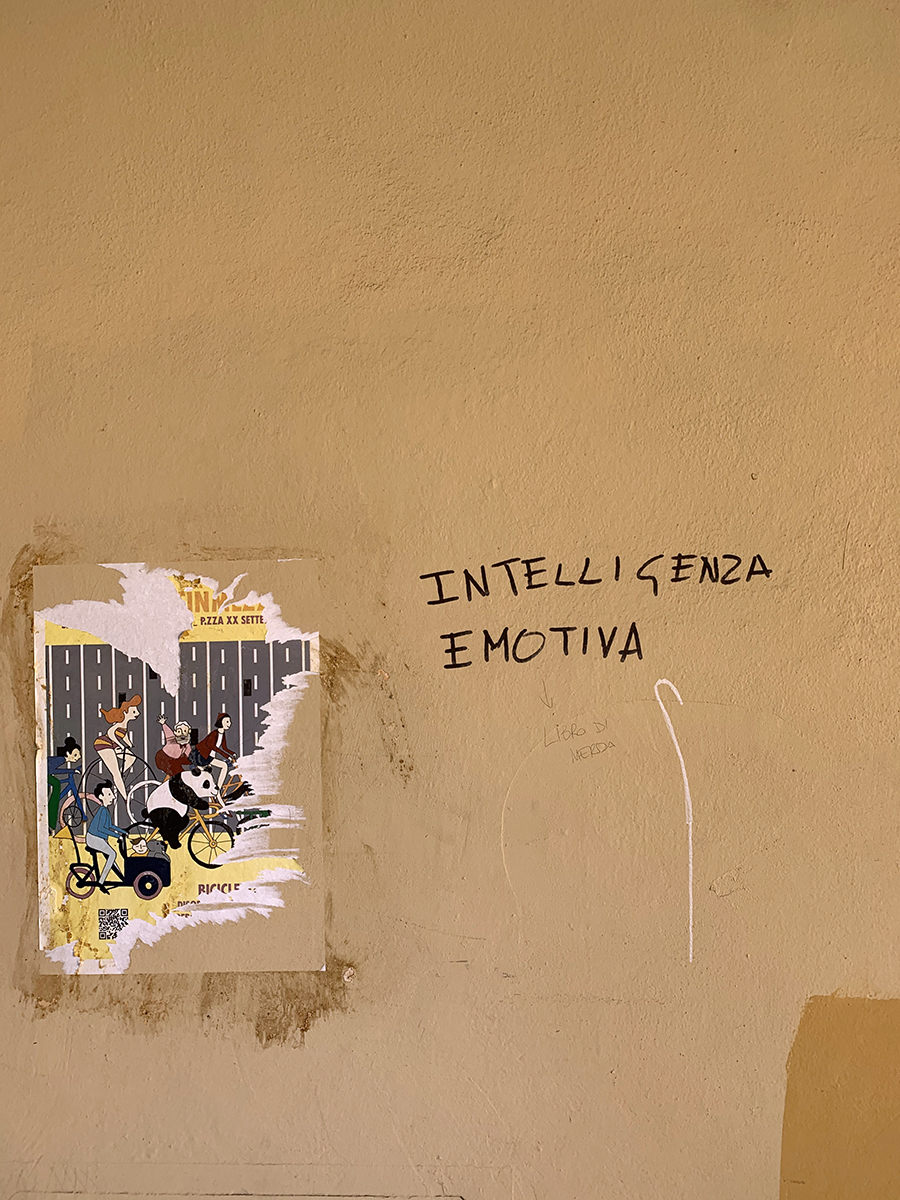 P.ZZA XX SETTE
BICICLE
INTELLIGENZA
EMOTIVA
LIBRO DI
MERDA